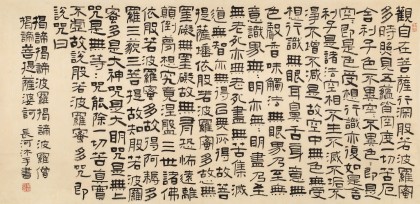 觀自在菩薩行深般若波羅蜜
多時照見五蘊皆空度一切苦厄
舍利子色不異空空不異色色即是
空空即是色受想行識亦復如是舍
利子是諸法空相不生不滅不垢不
淨不增不減是故空中無色無受想
行識無眼耳鼻舌身意無
色聲香味觸法無眼界乃至無
意識界無無明亦無無明盡乃
至無老死亦無老死盡無苦集滅
道無智亦無得以無所得故菩
提薩埵依般若波羅蜜多故心無
罣礙無罣礙故無有恐怖遠離
顛倒夢想究竟涅槃三世諸佛
依般若波羅蜜多故得阿耨多
羅三藐三菩提故知般若波羅
蜜多是大神咒是大明咒是無上
咒是無等等咒能除一切苦真實
不虛故說般若波羅蜜多咒即
說咒曰
揭諦揭諦波羅揭諦波羅僧
揭諦菩提薩婆訶
長河 書